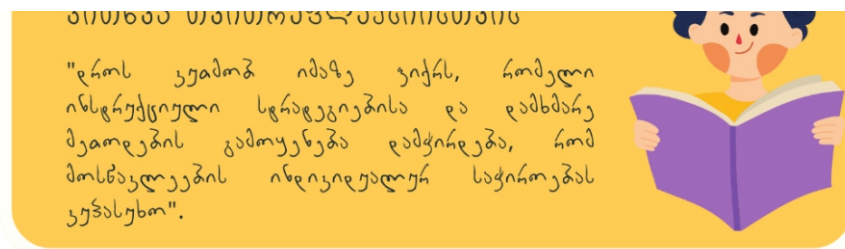 კითხვა თვითრეფლექსიისთვის
"დროს ვუთმობ იმაზე ფიქრს, რომელი
ინსტრუქციული სტრატეგიებისა და დამხმარე
მეთოდების გამოყენება დამჭირდება, რომ
მოსწავლეების ინდივიდუალურ საჭიროებას
ვუპასუხო".